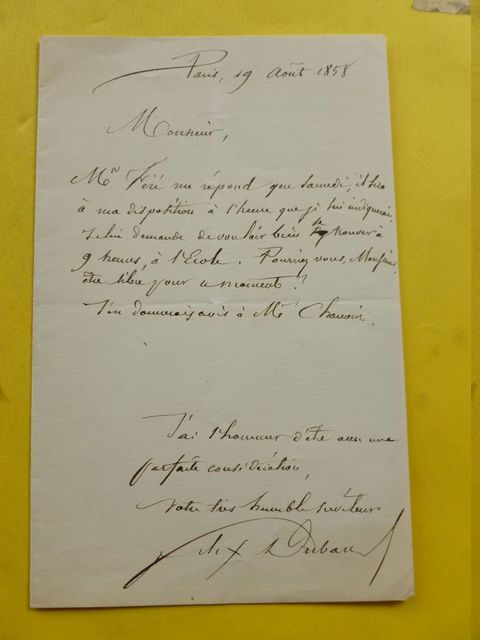 Paris, 19 Août 1858
Monsieur,
Mr me répond que samedi, il sera
à ma disposition à l'heure que je lui indiquerai.
Je lui demande de vouloir bien se trouver à
9 heures, à l'Ecole. Pourriez vous, Monsieur,
être libre pour ce moment ?
J'en donnerais avis à Mr
J'ai l'honneur d'être avec une
parfaite considération,
Votre très humble serviteur